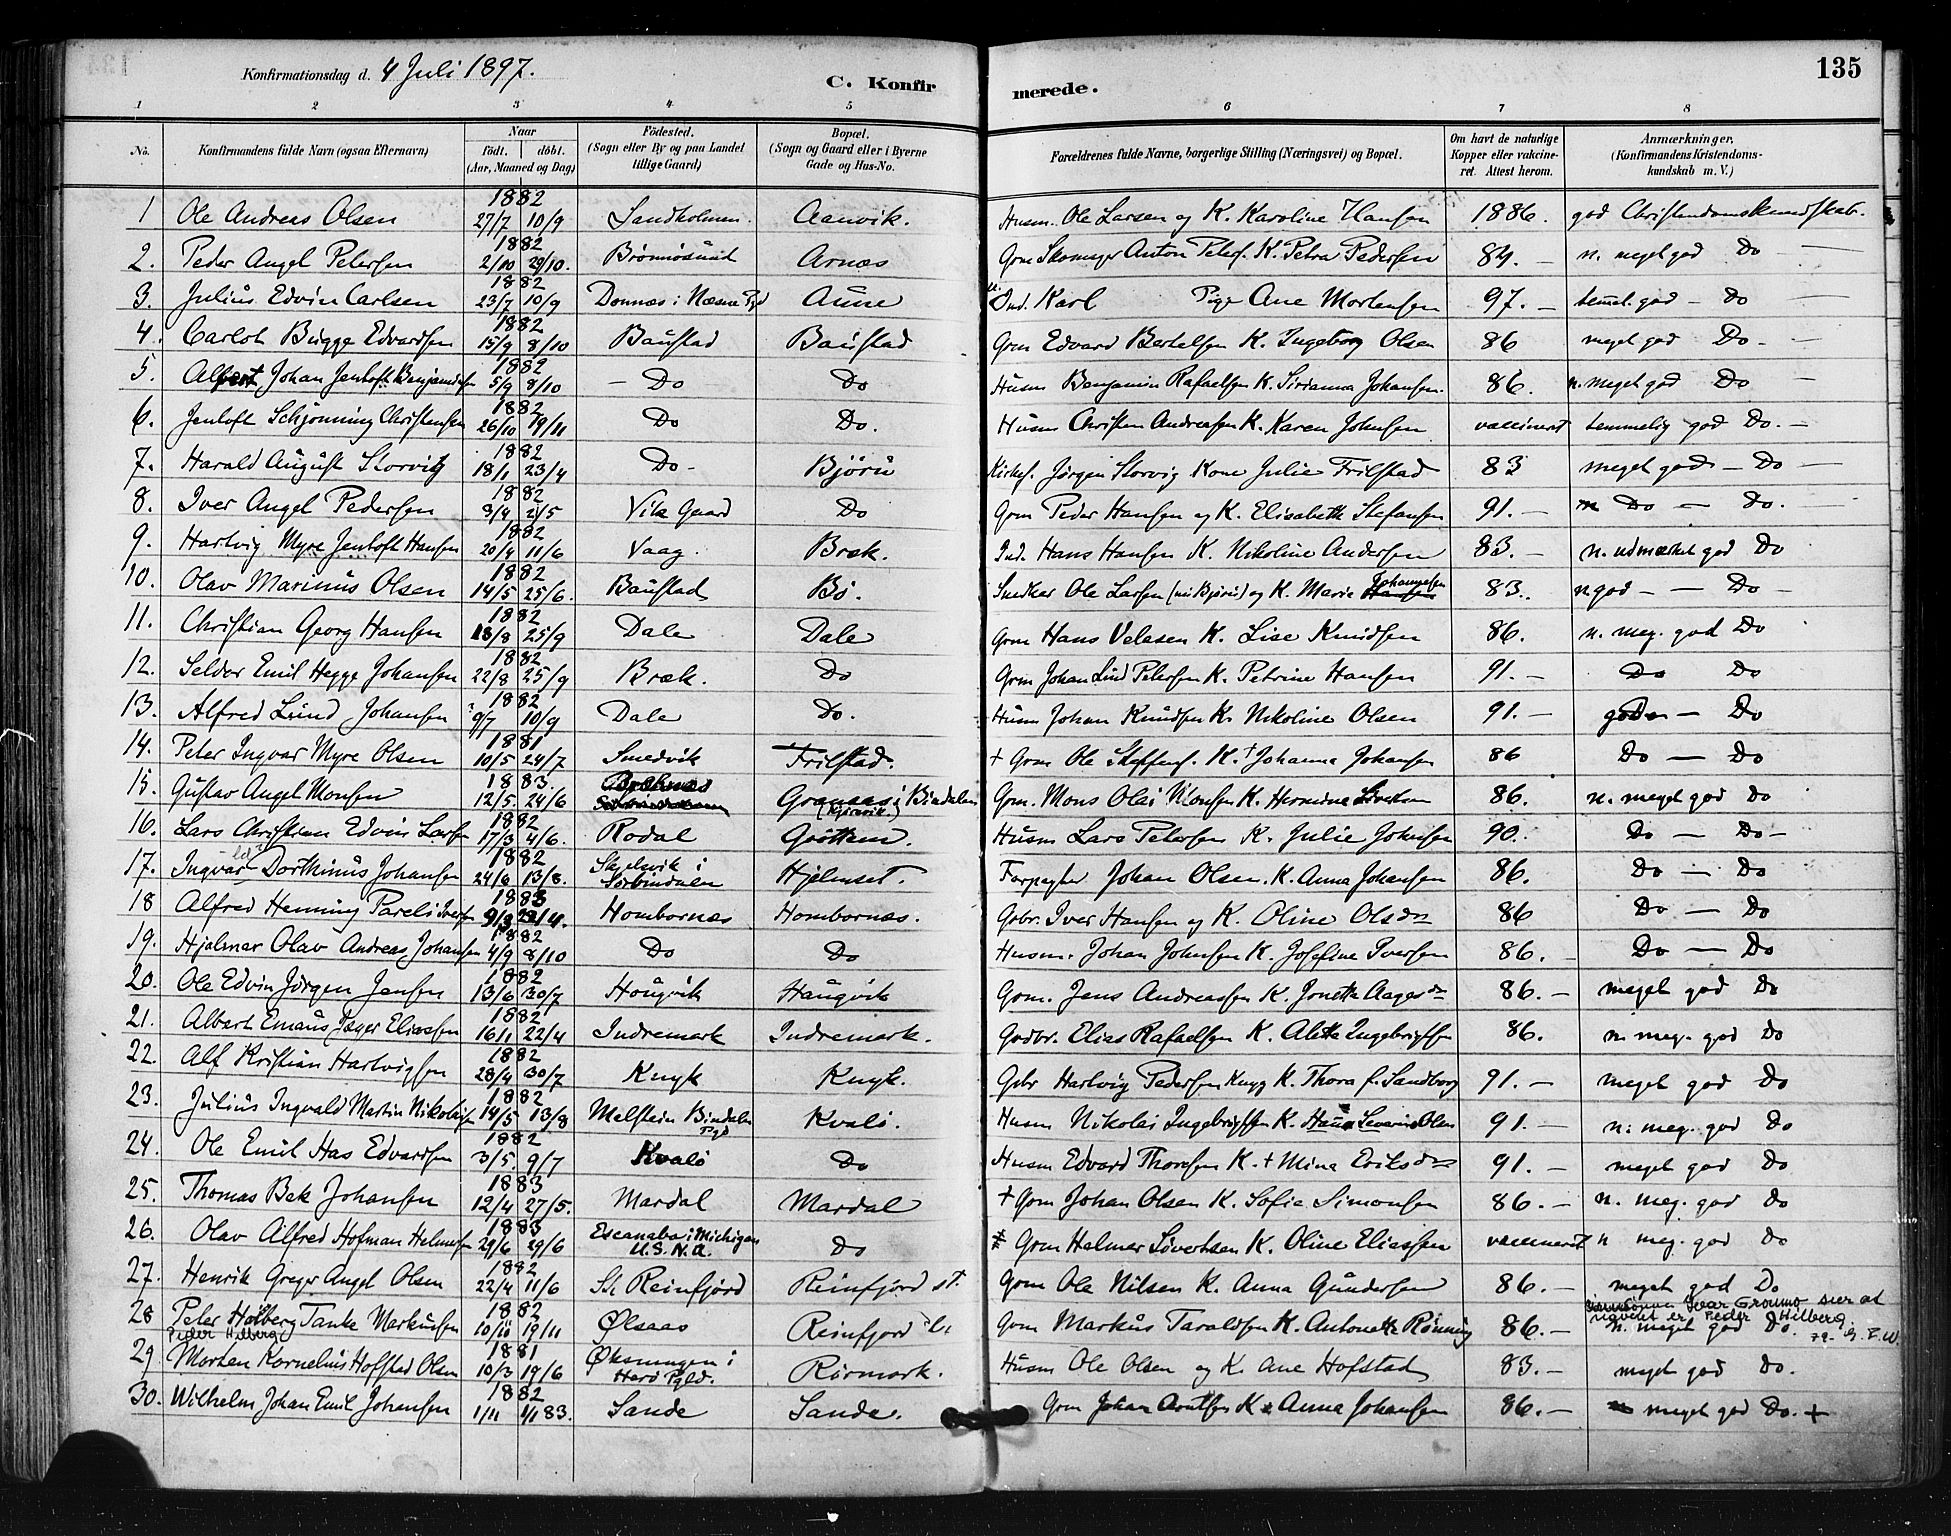 Konfirmationsdag d. 4 Juli 1897.
C. Konfirmerede.
135
1 2 3 4 5 6 7 8
No. Konfirmandens fulde Navn (ogsaa Efternavn) Naar født. døbt. (Aar, Maaned og Dag) Fødested. (Sogn eller By og paa Landet tillige Gaard) Bopæl. (Sogn og Gaard eller i Byerne Gade og Hus-No. Forældrenes fulde Navne, borgerlige Stilling (Næringsvei) og Bopæl. Om havt de naturlige Kopper eller vakcineret. Attest herom. Anmærkninger. (Konfirmandens Kristendomskundskab m. V.)
1 Ole Andreas Olsen 1882 27/7 10/9 Sandholmen. Aanvik. Husm. Ole Larsen og K. Karoline Hansen 1886. god Christendomskundskab.
2. Peder Angel Petersen 1882 2/10 29/10. Brønnøsund Arnæs Grm Skomager Anton Peters. K. Petra Pedersen 84. – n. meget god Do –
3. Julius Edvin Carlsen 1882 23/7 10/9 Dønnæs i Næsne Pgd Aune Ind. Karl Pige Ane Mortensen 97. – temmel. god – Do –
4. Carlot Bugge Edvardsen 1882 15/9 8/10 Baustad Baustad Grm Edvard Bertelsen K. Ingeborg Olsen 86 meget god Do. –
5. Albert Johan Jentoft Benjaminsen 1882 5/9 8/10 – Do Do Husm Benjamin Rafaelsen K. Sirianna Johansen. 86. n. meget god Do –
6. Jentoft Schjønning Christensen 1882 26/10 19/11 Do Do. Husm Christen Andreassen K. Karen Johnsen vaccineret temmelig god Do. –
7. Harald August Storvig 1882 18/1 23/4 Do – Bjøru Kirkes. Jørgen Storvig Kone Julie Frilstad 83 meget god – Do –
8. Iver Angel Pedersen 1882 3/4 2/5 Vik Gaard Do Grm Peder Hansen og K. Elisabeth Stefansen 91. – Do – Do.
9. Hartvig Myre Jentoft Hansen 1882 20/4 11/6 Vaag. Bræk. Ind. Hans Hansen K. Nikoline Andersen 83. – n. udmærket god Do
10. Olav Marinus Olsen 1882 14/5 25/6. Baustad Bø. Snedker Ole Larsen (nu Bjøru) og K. Marie Johannesen 83. n god – – Do –
11. Christian Georg Hansen 1882 13/8 25/9 Dale Dale Grm Hans Velesen K. Lise Knudsen 86. n. meg. god Do
12. Selder Emil Hegge Johansen 1882 22/8 25/9 Bræk. Do Grm Johan Lind Petersen K. Petrine Hansen 91. – Do Do
13. Alfred Lund Johansen 1882 9/7 10/9 Dale Do. Husm Johan Knudsen K. Nikoline Olsen 91. – god – Do
14. Peter Ingvar Myre Olsen 1881 10/5 24/7 Smedvik Frilstad. + Grm Ole Steffens. K. + Johanna Johansen 86 Do – Do
15. Gustav Angel Monsen 1883. 12/5 24/6 Granaas i Bindalen Grm. Mons Olai Monsen K. Hermine 86. n. meget god Do
16. Lars Christian Edvin Larsen 1882 17/3 4/6. Rodal Gøttem. Husm Lars Petersen K. Julie Johnsen 90. Do – Do –
17. Ingvar Dorthinus Johansen 1882 24/6 13/8. Skjelsvik i Sørbindalen Hjelmset. Forpagter Johan Olsen. K. Anna Johansen 86. Do – Do
18 Alfred Henning Pareli Iversen 1883 9/3 22/4. Hombornæs Hombornæs. Grbr. Iver Hansen og K. Oline Olsdtr 86 Do – Do
19. Hjalmar Olav Andreas Johansen 1882 4/9 8/10 Do Do Husm. Johan Johnsen K. Josefine Iversen 86. – Do – Do
20. Ole Edvin Jørgen Jensen 1882 13/6 30/7 Hougvik Haugvik Grm. Jens Andreassen K. Jonetta Aagesdtr 86. – meget god Do
21. Albert Emaus Jæger Eliassen 1882 16/1 22/4 Indremark Indremark. Gadbr. Elias Rafaelsen K. Aletta Ingebrigtsen 86. n. meg. god Do
22. Alf Kristian Hartvigsen 1882 28/4 30/7 Knyk Knyk. Gbr Hartvig Pedersen Knyg K. Thora f. Sandborg 91. – meget god Do
23. Julius Ingvald Martin Nikolaisen 1882 14/5 13/8 Melstein Bindalen Pgd Kvalø. Husm Nikolai Ingebrigtsen K. Hanna Severine Olsen 91. – n. meg. god Do
24. Ole Emil Has Edvardsen 1882 3/5. 9/7 Kvalø Do Husm Edvard Thoresen K. + Mina Eriksdtr 91. – meget god Do
25. Thomas Bek Johansen 1883 12/4 27/5. Mardal Mardal + Grm Johan Olsen K. Sofie Simonsen 86. – n. meg. god Do
26. Olav Alfred Hofman Helmersen 1883 29/6 29/6 Escanaba i Michigan U.S.N.A. Do Grm Helmer Sivertsen K. Oline Eliassen vaccineret n meg. god Do
27. Henrik Greger Angel Olsen 1882 22/4 11/6 St. Reinfjord Reinfjord st. Grm Ole Nilsen K. Anna Gundersen 86. – meget god Do
28 Peter Holberg Tanke Markussen 1882 10/10 19/11 Ølsaas Reinfjord li. Grm Markus Taraldsen K. Antonette Rønning 86. – n. meget god Do.
Peder Hilberg
Ivar Grønmo sier at navnet er Peder Hilberg
29 Morten Kornelius Hofstad Olsen 1881 10/3 19/6 Øksningen i Herø Pgld. Rørmark. Husm Ole Olsen og K. Ane Hofstad 83. – meget god Do.
30. Wilhelm Johan Emil Johansen 1882 1/11 1/1 83. Sande Sande. Grm Johan Arntsen K. Anna Johansen 86. – meget god Do. +